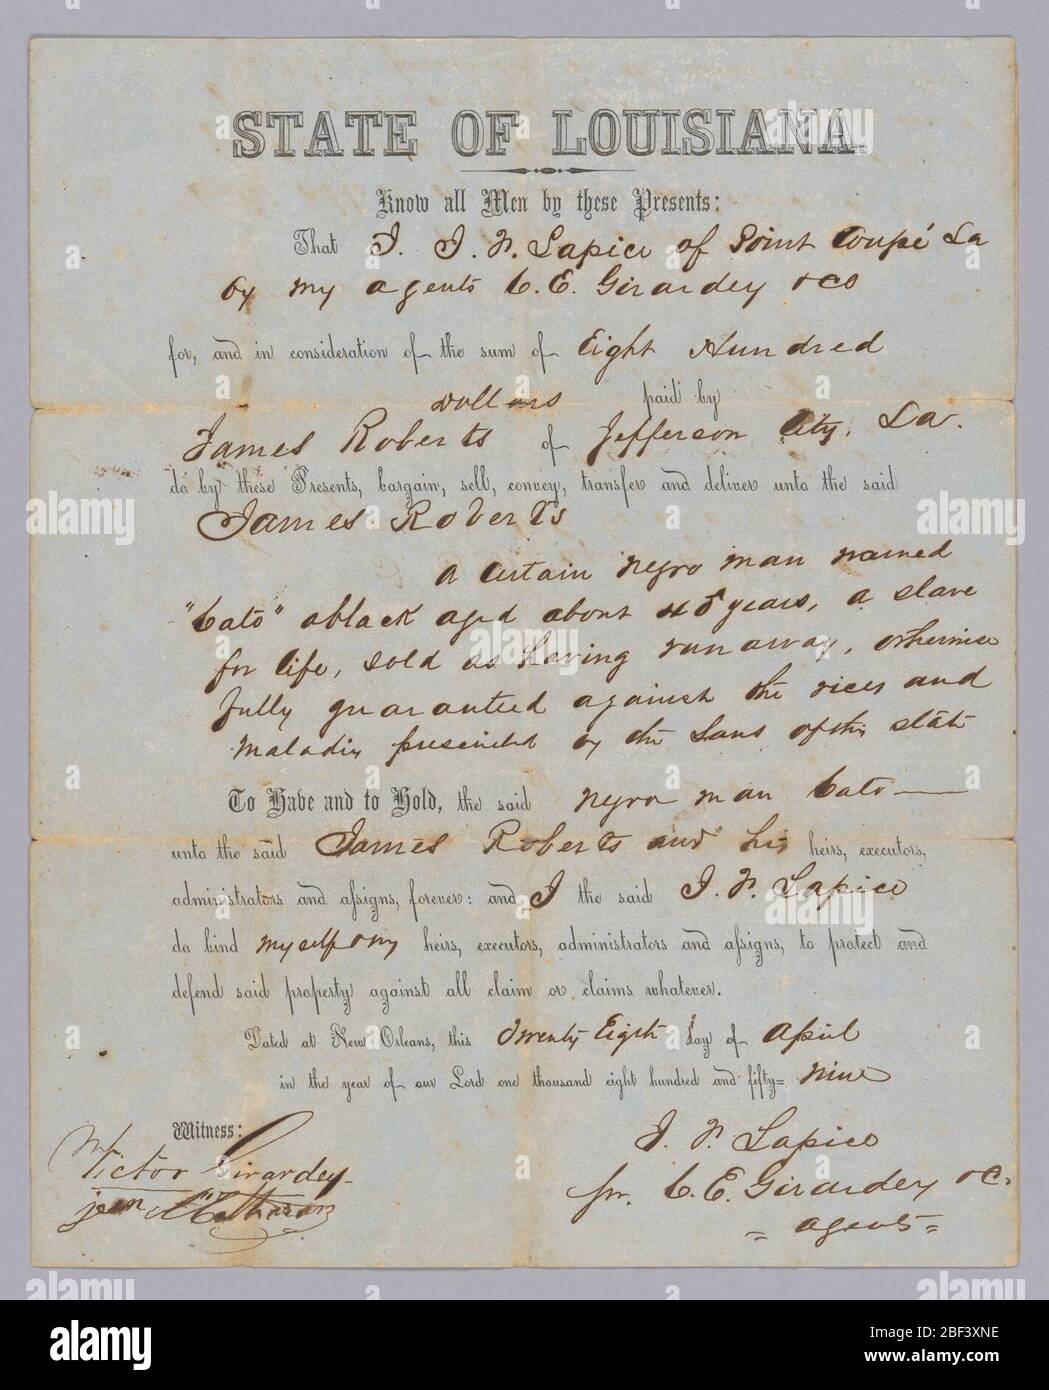 STATE OF LOUISIANA.
Know all Men by these Presents:
That I. J. F. Lapice of Point Coupé La
by my agents C. E. Girardey & Co
for, and in consideration of the sum of Eight Hundred
dollars paid by
James Roberts of Jefferson City, La.
do by these Presents, bargain, sell, convey, transfer and deliver unto the said
James Roberts
a certain negro man named
"Cato" a black aged about 45 years, a slave
for life, sold as having runaway, otherwise
fully guaranteed against the vices and
maladies prescribed by the Laws of this state
To Have and to Hold, the said negro man Cato
unto the said James Roberts and his heirs, executors,
administrators and assigns, forever: and I the said J. F. Lapice
do bind myself & my heirs, executors, administrators and assigns, to protect and
defend said property against all claim or claims whatever.
Dated at New Orleans, this Twenty Eigth day of April
in the year of our Lord one thousand eight hundred and fifty= nine
Witness:
J. F. Lapice
Victor Girardey
pr. C. E. Girardey & C.
Jean
= agents =
alamy
Image ID: 2BF3XNE
www.alamy.com